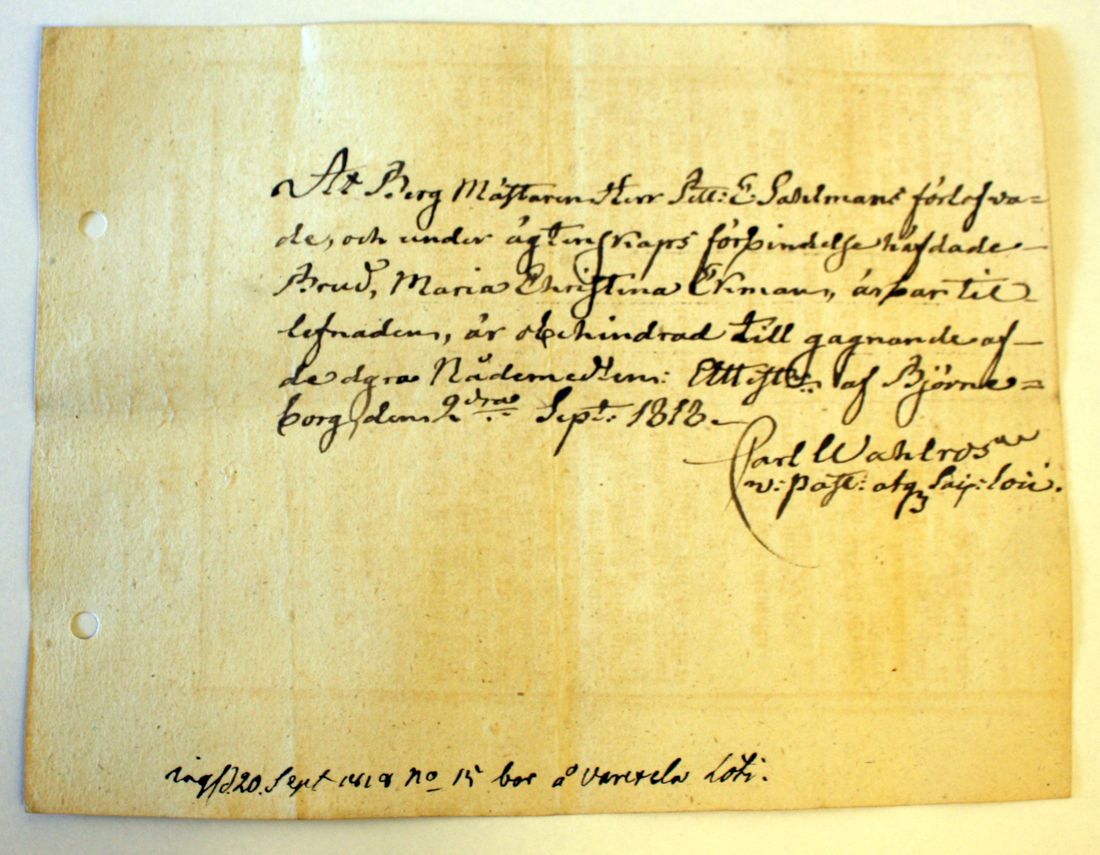 At Berg Mästaren Herr Pett: E: Sahlmans förlofva=
de, och under ägtenskaps förbindelse häfdade
Brud, Maria Christina Ekman, ärbar til
lefnaden, är obehindrad till gagnande af
de dyra Nådemedlen: Attest: af Björne=
borg den 2dra Sept: 1818.
Carl Wahlroos
v: past: atq
20. Sept 1818 No 15 bor å